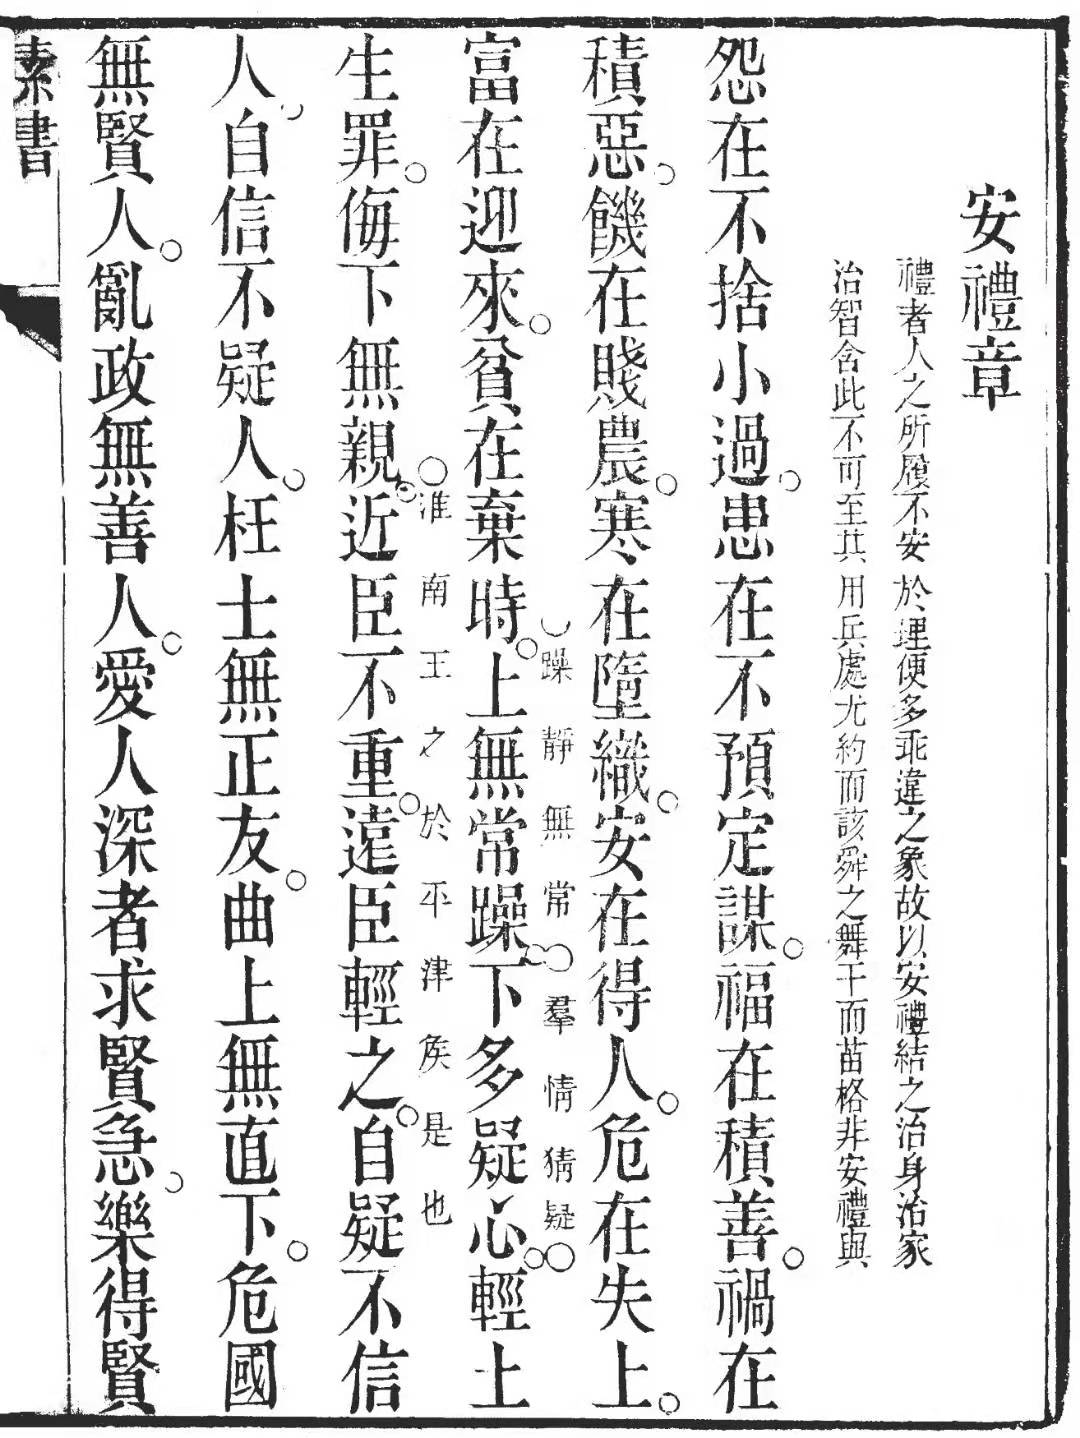 安禮章
禮者人之所履不安於理便多乖違之象故以安禮結之治身治家
治智舍此不可至其用兵處尤約而該舜之舞干而苗格非安禮與
怨在不捨小過患在不預定謀福在積善禍在
積惡饑在賤農寒在墮織安在得人危在失上
躁靜無常羣情猜疑
富在迎來貧在棄時上無常躁下多疑心輕上
淮南王之於平津矦是也
生罪侮下無親近臣不重遠臣輕之自疑不信
人自信不疑人枉士無正友曲上無直下危國
無賢人亂政無善人愛人深者求賢急樂得賢
素書